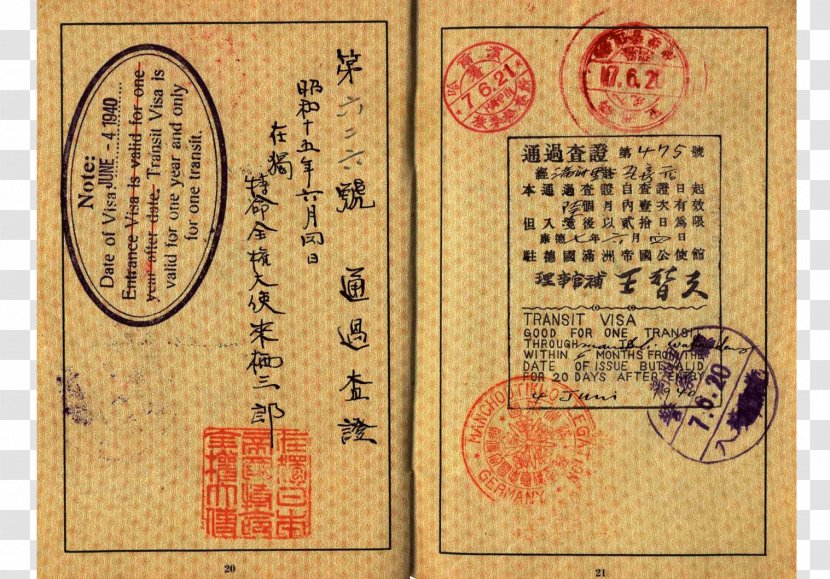 Note:
Date of Visa: JUNE - 4 1940
Entrance Visa is valid for one
year after date. Transit Visa is
valid for one year and only
for one transit.
第六二六號 通過査證
昭和十五年六月四日
在獨
特命全權大使来栖三郎
20
7.6.21
HARPIN
7.6.21
通過査證 第475號
本通過査證自査證日起
個月内壹次有效
但入滿後以貳拾日為限
康德七年六月四日
駐德國滿洲帝國公使館
理事官補 王替夫
TRANSIT VISA
GOOD FOR ONE TRANSIT
THROUGH
WITHIN 6 MONTHS FROM THE
DATE OF ISSUE BUT VALID
FOR 20 DAYS AFTER ENTRY
4 Juni 1940
MANCHOUTIKUO LEGATION
GERMANY
7.6.20
21